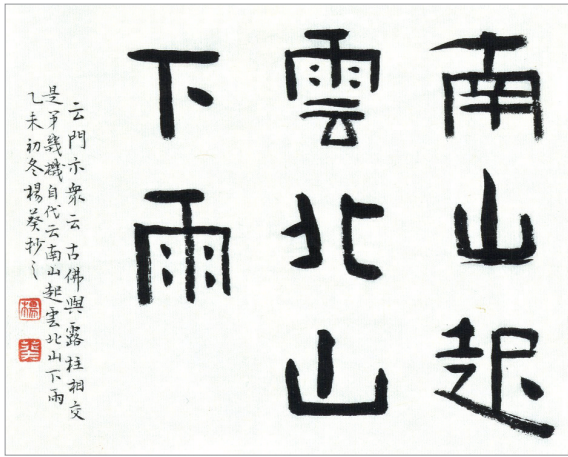 南山起
雲北山
下雨
云門示衆云古佛與露柱相交
是第幾機自代云南山起雲北山下雨
乙未初冬楊葵抄之
楊
葵